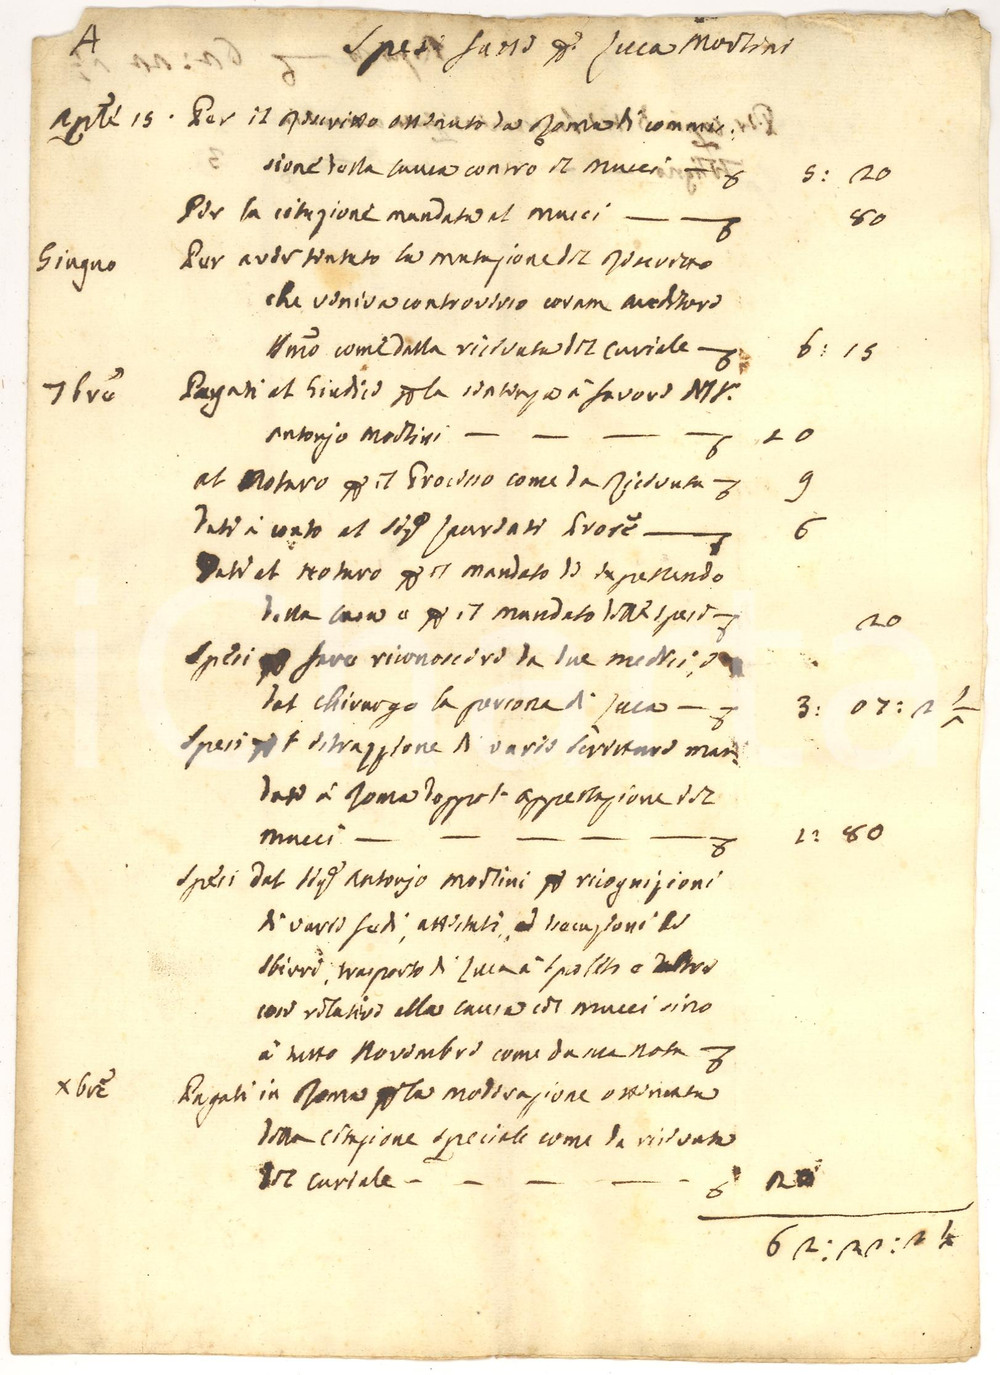 A
Spesi fatte p. Luca Modlini
Aprile 15. Per il Rescritto ottenuto da Roma di commis:
sione della causa contro il Mucci 5: 20
Per la citazione mandata al Mucci 80
Giugno Per aver tentato la mutazione del Rescritto
che veniva controverso coram Auditore
SSmo come dalla ricevuta del Curiale 6: 15
7bre Pagati al Giudice p la sentenza à favore
Antonjo Modlini 20
al Notaro p il Processo come da Ricevuta 9
Dati à conto al Sigr 6
Dati al Notaro p il mandato de
della e p il mandato delle spese 20
Spesi p fare riconoscere da due medici, e
dal chirurgo la persona di Luca 3: 07: 2 1/2
Spesi p l'estrazzione di varie scritture man:
date à Roma doppo l'appellazione del
Mucci 1: 80
Spesi dal Sigr Antonjo Modlini p ricognizioni
di varie fedi, attestati, ed esecuzioni de
sbirri, trasporto di Luca à Spoleto e altre
cose relative alla causa del Mucci sino
à tutto Novembre come da sua nota
Xbre Pagati in Roma p la moderazione ottenuta
della citazione speciale come da ricevuta
del curiale 20
62: 22: 2 1/2